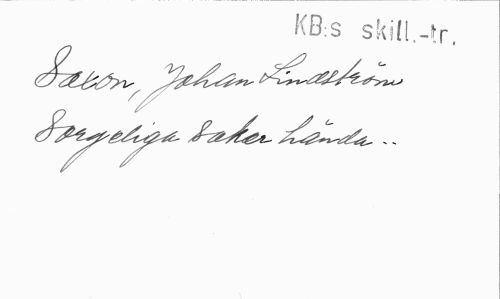 KB:s skill.-tr.
Saxon, Johan Lindström
Sorgeliga saker hända..